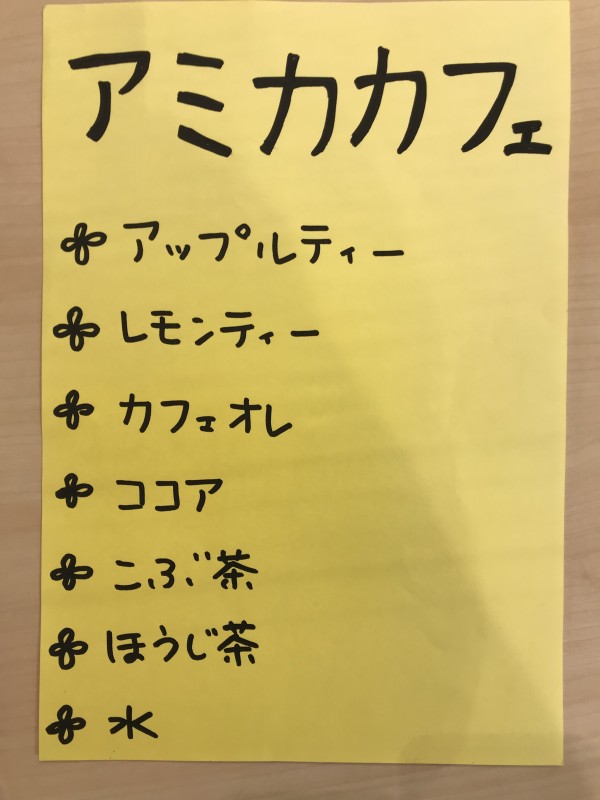 アミカカフェ
アップルティー
レモンティー
カフェオレ
ココア
こぶ茶
ほうじ茶
水